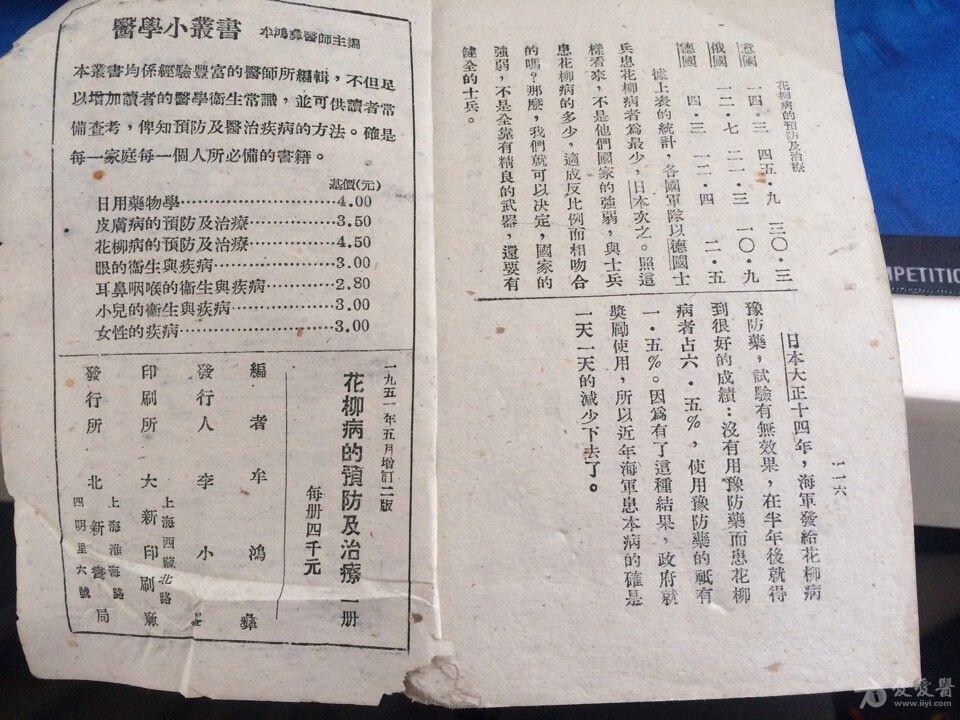 花柳病的預防及治療
意國 一四·三 四五·九 三〇·三
俄國 一二·七 二一·三 一〇·九
德國 四·三 一二·四 二·五
據上表的統計，各國軍隊以德國士
兵患花柳病者爲最少，日本次之。照這
樣看來，不是他們國家的強弱，與士兵
患花柳病的多少，適成反比例而相吻合
的嗎？那麽，我們就可以決定，國家的
強弱，不是全靠有精良的武器，還要有
健全的士兵。
一一六
日本大正十四年，海軍發給花柳病
豫防藥，試驗有無效果，在半年後就得
到很好的成績：沒有用豫防藥而患花柳
病者占六·五％，使用豫防藥的祇有
一·五％。因爲有了這種結果，政府就
獎勵使用，所以近年海軍患本病的確是
一天一天的減少下去了。
醫學小叢書 牟鴻彝醫師主編
本叢書均係經驗豐富的醫師所編輯，不但足
以增加讀者的醫學衞生常識，並可供讀者常
備查考，俾知預防及醫治疾病的方法。確是
每一家庭每一個人所必備的書籍。
基價(元)
日用藥物學…………………………4.00
皮膚病的預防及治療………………3.50
花柳病的預防及治療………………4.50
眼的衞生與疾病……………………3.00
耳鼻咽喉的衞生與疾病……………2.80
小兒的衞生與疾病…………………3.00
女性的疾病…………………………3.00
一九五一年五月增訂二版
花柳病的預防及治療一册
每册四千元
編者 牟鴻彝
發行人 李小峯
印刷所 大新印刷廠
上海西藏北路
發行所 北新書局
上海淮海路
四明里六號
MPETITIO
愛愛醫
www.iiyi.com